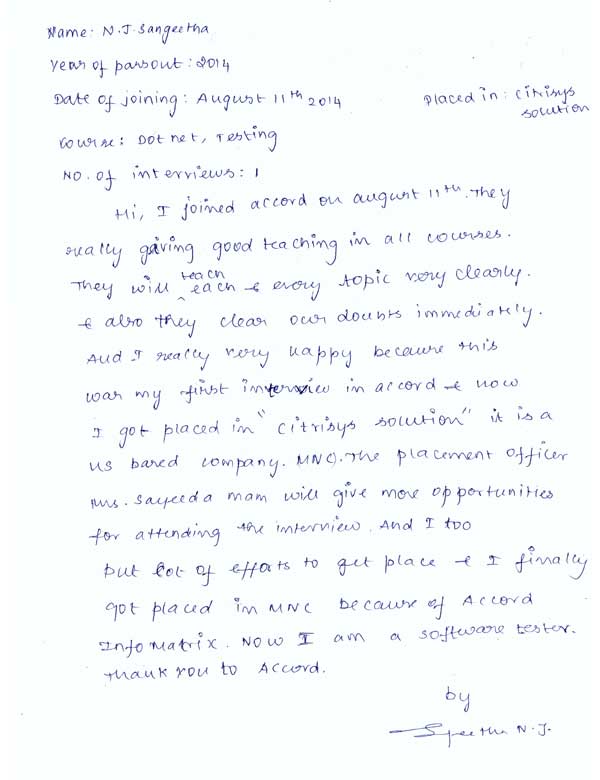 Name: N.J. Sangeetha
Year of passout: 2014
Date of joining: August 11th 2014
Placed in: Citrisys
solution
Course: Dot net, Testing
No. of interviews: 1
Hi, I joined accord on august 11th. They
really giving good teaching in all courses.
They will teach each & every topic very clearly.
& also they clear our doubts immediately.
And I really very happy because this
was my first interview in accord & now
I got placed in "Citrisys solution" it is a
US based company. MNC. The placement officer
Ms. Sayeeda mam will give more opportunities
for attending the interview. And I too
put lot of efforts to get place & I finally
got placed in MNC because of Accord
Info Matrix. Now I am a software tester.
Thank you to Accord.
by
Sgeetha N.J.